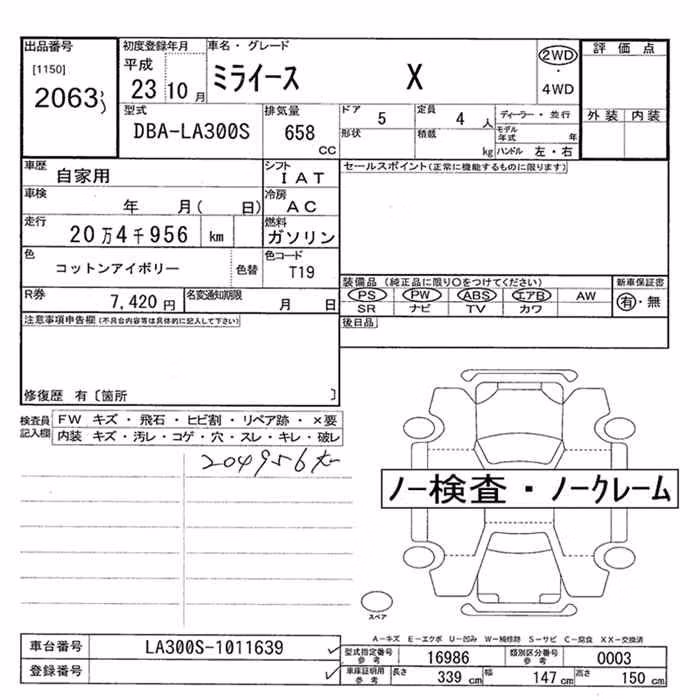 出品番号
[1150]
2063
初度登録年月
平成
23 10 月
車名・グレード
ミライース X
2WD
・
4WD
評価点
外装 内装
型式
DBA-LA300S
排気量
658
CC
ドア
5
定員
4 人
ディーラー・並行
形状
積載
kg
モデル年式 年
ハンドル 左・右
車歴
自家用
シフト
IAT
セールスポイント(正常に機能するものに限ります)
車検
年 月( 日)
冷房
AC
走行
20万4千956 km
燃料
ガソリン
色
コットンアイボリー
色替
色コード
T19
装備品 (純正品に限り○をつけてください)
新車保証書
PS PW ABS エアB AW
有・無
SR ナビ TV カワ
R券
7,420 円
名変通知期限
月 日
後日品
注意事項申告欄(不具合内容等は具体的に記入して下さい)
修復歴 有〔箇所 〕
検査員
記入欄
FW キズ・飛石・ヒビ割・リペア跡・×要
内装 キズ・汚レ・コゲ・穴・スレ・キレ・破レ
204956
ノー検査・ノークレーム
スペア
A−キズ E−エクボ U−凹み W−補修跡 S−サビ C−腐食 XX−交換済
車台番号
LA300S-1011639
登録番号
型式指定番号
参考
16986
類別区分番号
参考
0003
車庫証明用
参考
長さ
339 cm
幅
147 cm
高さ
150 cm